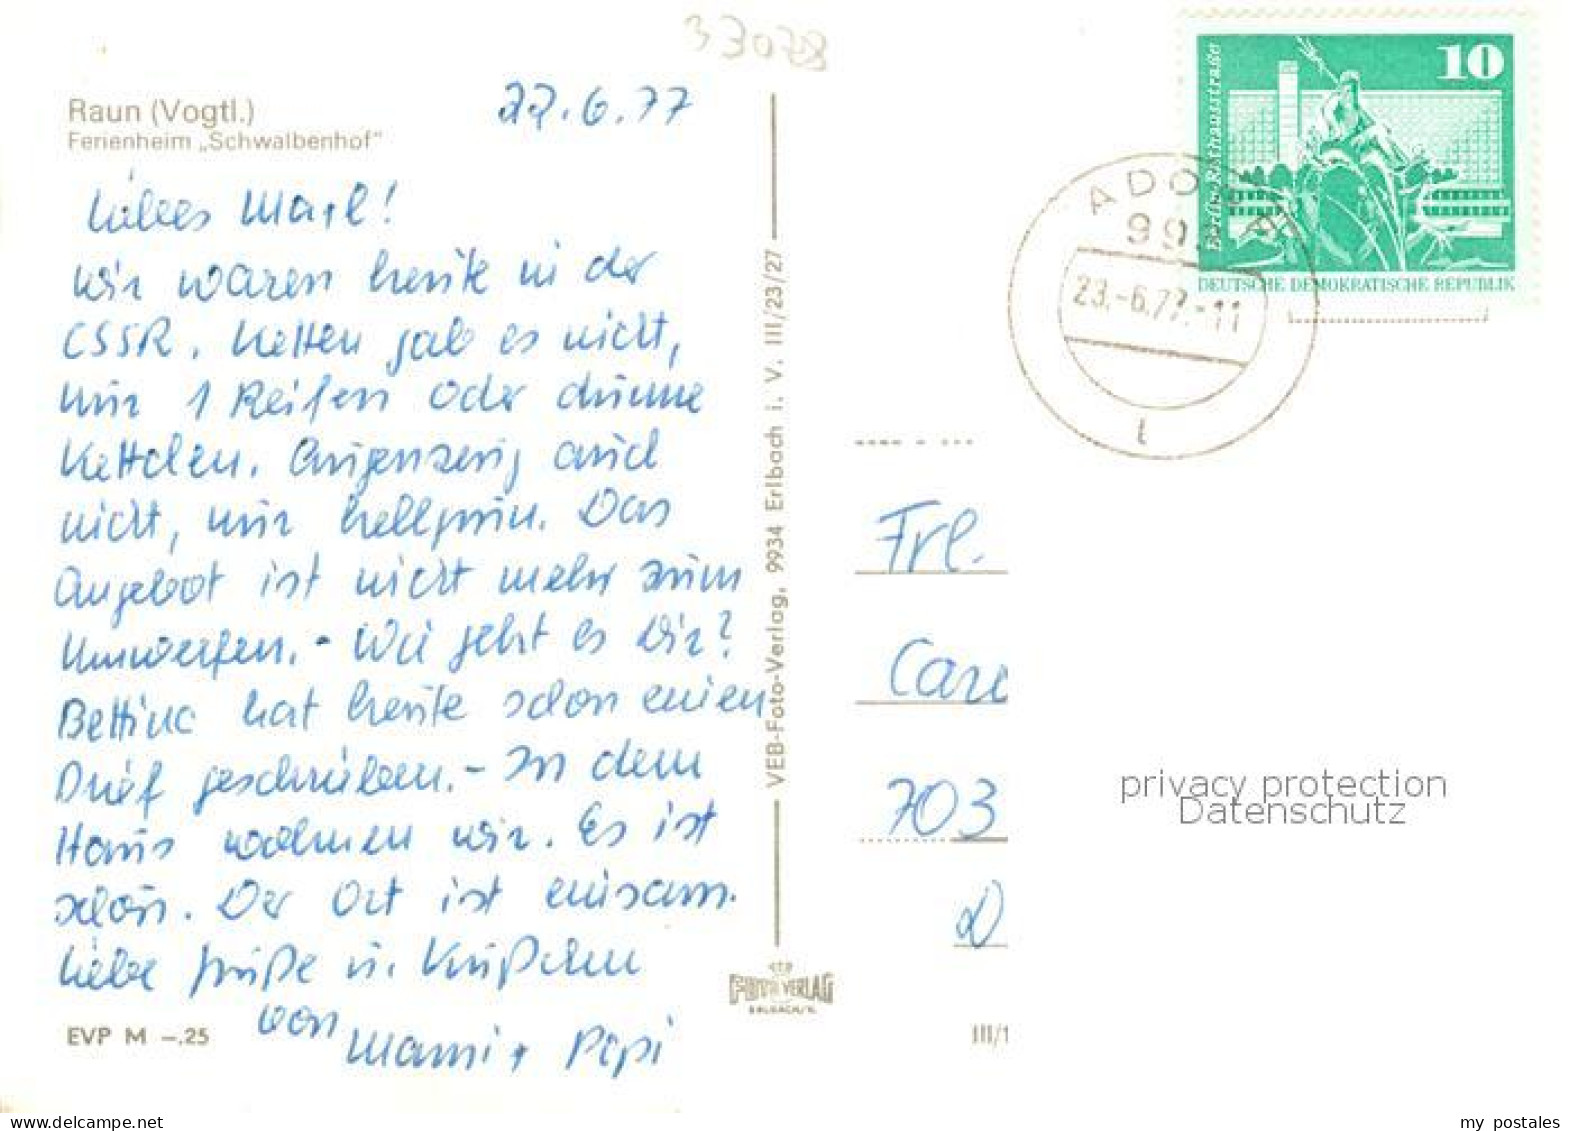 33078
Raun (Vogtl.)
Ferienheim „Schwalbenhof"
22.6.77
Liebes Marl!
Wir waren heute in der
CSSR. Ketten gab es nicht,
nur 1 Reifen oder dünne
Kettchen. Augenzeug auch
nicht, nur hellgrün. Das
Angebot ist nicht mehr zum
Umwerfen. - Wie geht es Dir?
Bettina hat heute schon einen
Brief geschrieben. - In dem
Haus wohnen wir. Es ist
schön. Der Ort ist einsam.
Liebe Grüße u. Küßchen
von Mami + Papi
EVP M –.25
VEB-Foto-Verlag, 9934 Erlbach i. V. III/23/27
FOTO VERLAG
ERLBACH/V.
10
Berlin, Rathausstraße
DEUTSCHE DEMOKRATISCHE REPUBLIK
ADORF
99
23.-6.77.-11
t
Frl.
703
III/1
privacy protection
Datenschutz
www.delcampe.net
my postales